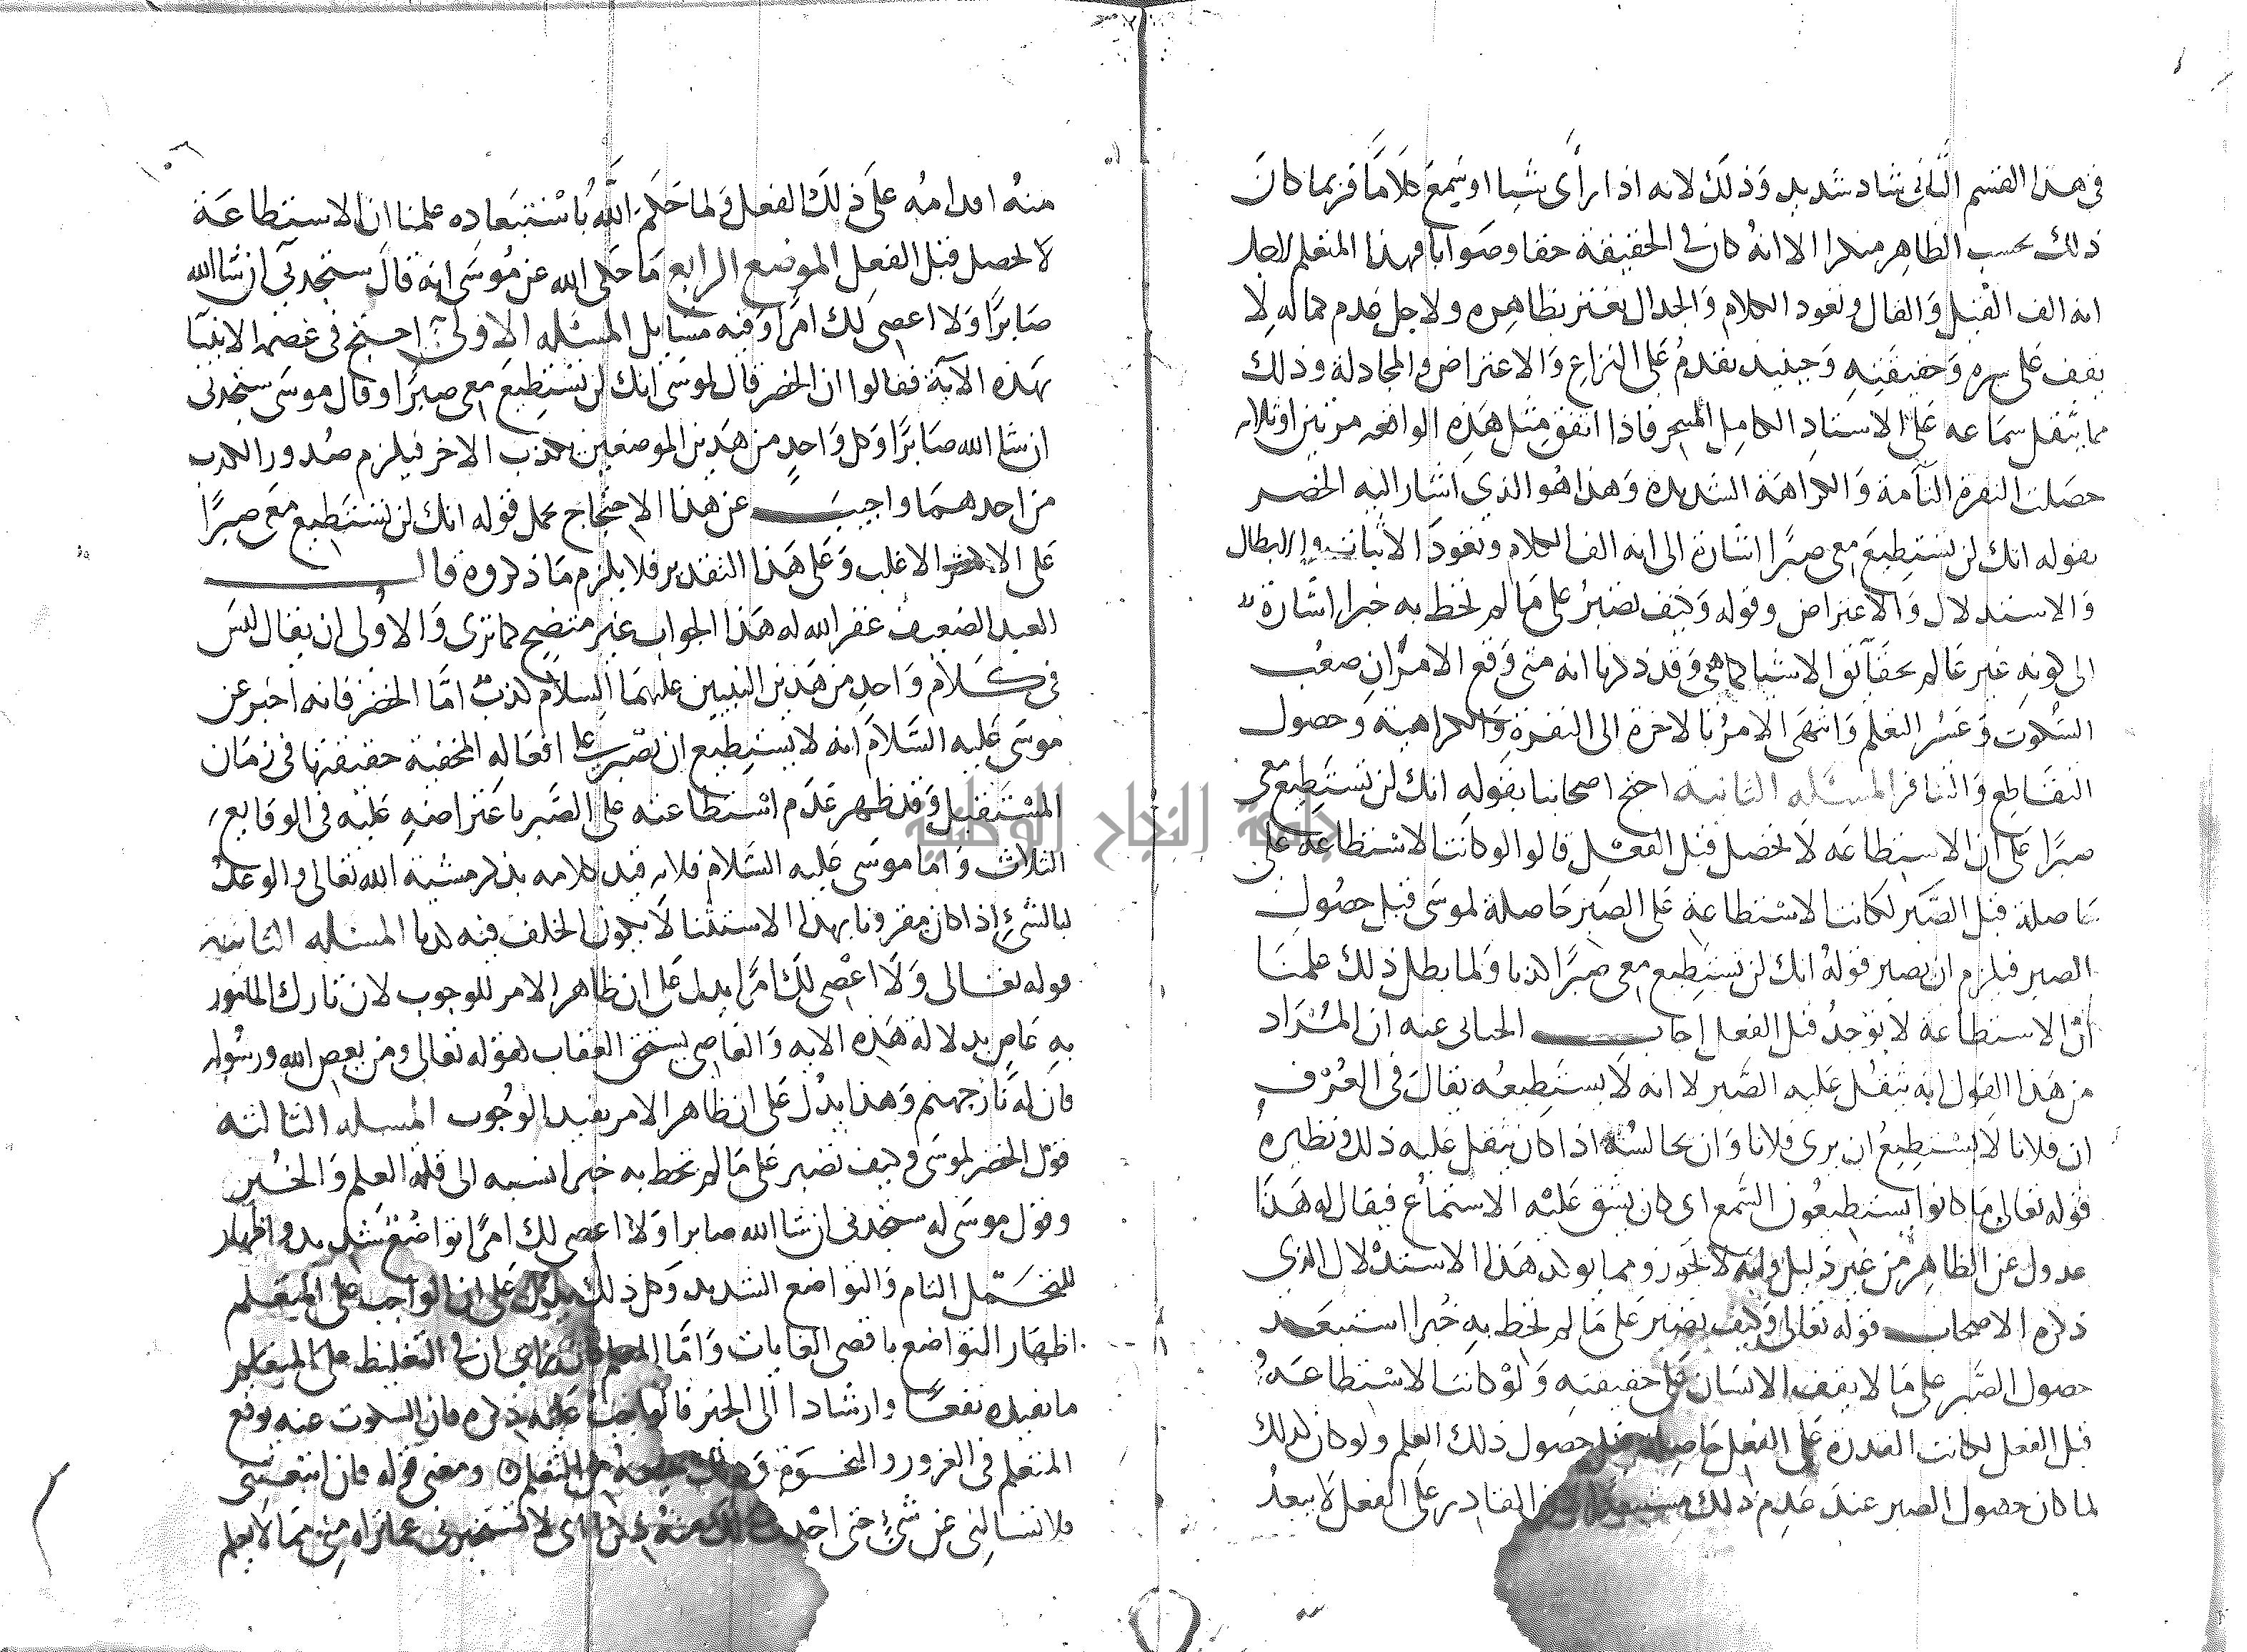 في هذا القسم الثاني شاد شديد وذلك لانه اذا رأى شيا او سمع كلاما فربما كان
ذلك بحسب الظاهر منكرا الا انه كان في الحقيقة حقا وصوابا فهذا المتعلم لاجل
انه الف القيل والقال وتعود الكلام والجدال يغتر بظاهره ولاجل عدم كماله لا
يقف على سره وحقيقته وحينيذ يقدم على النزاع والاعتراض والمجادلة وذلك
مما يثقل سماعه على الاستاد الكامل المتبحر فاذا اتفق مثل هذه الواقعه مرتين او ثلاثه
حصلت النفرة التآمة والكراهة الشديدة وهذا هو الذي اشار اليه الخضر
بقوله انك لن تستطيع معي صبرا اشارة الى انه الف الكلام وتعود الاثبات والابطال
والاستدلال والاعتراض وقوله وكيف تصبر على ما لم تحط به خبرا اشارة
الى كونه غير عالم بحقآئق الاشيا كما هي وقد ذكرنا انه متى وقع الامران صعب
السكوت وعسر التعلم وانتهى الامر بالاخرة الى النفرة والكراهية وحصول
التقاطع والتنافر المسئله الثانية احتج اصحابنا بقوله انك لن تستطيع معي
صبرا على ان الاستطاعه لا تحصل قبل الفعل قالوا لو كانت الاستطاعة على
حاصلة قبل الصبر لكانت الاستطاعة على الصبر حاصلة لموسى قبل حصول
الصبر فيلزم ان يصير قوله انك لن تستطيع معي صبرا كذبا ولما بطل ذلك علمنا
ان الاستطاعة لا توجد قبل الفعل اجاب الجبائى عنه ان المراد
من هذا القول انه يثقل عليه الصبر لا انه لا يستطيعه يقال في العرف
ان فلانا لا يستطيع ان يرى فلانا وان يجالسه اذا كان يثقل عليه ذلك ونظيره
قوله تعالى ما كانوا يستطيعون السمع اى كان يشق عليه الاستماع فيقال له هذا
عدول عن الظاهر من غير دليل وانه لا يجوز ومما يوكد هذا الاستدلال الذي
ذكره الاصحاب قوله تعالى وكيف تصبر على ما لم تحط به خبرا استبعد
حصول الصبر على ما لا يقف الانسان على حقيقته ولو كانت الاستطاعه
قبل الفعل لكانت القدرة على الفعل حاصله قبل حصول ذلك العلم ولو كان كذلك
لما كان حصول الصبر عند عدم ذلك مستبعدا لان القادر على الفعل لا يبعد
منه اقدامه على ذلك الفعل ولما حكم الله باستبعاده علمنا ان الاستطاعة
لا تحصل قبل الفعل الموضع الرابع ما حكى الله عن موسى انه قال ستجدني ان شا الله
صابرا ولا اعصى لك امرا وفيه مسايل المسئله الاولى احتج في عصمة الانبيا
بهذه الآية فقالوا ان الخضر قال لموسى انك لن تستطيع معي صبرا وقال موسى ستجدني
ان شا الله صابرا وكل واحد من هذين الموضعين يكذب الاخر فيلزم صدور الكذب
من احدهما واجيب عن هذا الاحتجاج بحمل قوله انك لن تستطيع معي صبرا
على الاكثر الاغلب وعلى هذا التقدير فلا يلزم ما ذكروه قال
العبد الضعيف غفر الله له هذا الجواب غير متضح كما ترى والاولى ان يقال ليس
في كلام واحد من هذين النبيين عليهما السلام كذب اما الخضر فانه اخبر عن
موسى عليه السلام انه لا يستطيع ان يصبر على افعاله المخفية حقيقتها في زمان
المستقبل وقد ظهر عدم استطاعته على الصبر باعتراضه عليه في الوقايع
الثلاث واما موسى عليه السلام فلانه قيد كلامه بذكر مشية الله تعالى والوعد
بالشئ اذا كان مقرونا بهذا الاستثنا لا يكون الخلف فيه كذبا المسئله الثانيه
قوله تعالى ولا اعصى لك امرا يدل على ان ظاهر الامر للوجوب لان تارك المامور
به عاص بدلالة هذه الايه والعاصي يستحق العقاب لقوله تعالى ومن يعص الله ورسوله
فان له نار جهنم وهذا يدل على ان ظاهر الامر يفيد الوجوب المسله الثالثه
قول الخضر لموسى وكيف تصبر على ما لم تحط به خبرا نسبه الى قلة العلم والخبر
وقول موسى له ستجدني ان شا الله صابرا ولا اعصى لك امرا تواضع شديد واظهار
للتحمل التام والتواضع الشديد وكل ذلك يدل على ان الواجب على المتعلم
اظهار التواضع باقصى الغايات واما المعلم فان راى ان في التغليظ على المتعلم
ما يفيده نفعا وارشادا الى الخير فالواجب عليه ذكره فان السكوت عنه يوقع
المتعلم في الغرور والنخوة وذلك يمنعه من التعلم ومعنى قوله فان اتبعتني
فلا تسالني عن شئ حتى احدث لك منه ذكرا اى لا تستخبرني عما تراه مني مما لا يعلم
جامعة النجاح الوطنية